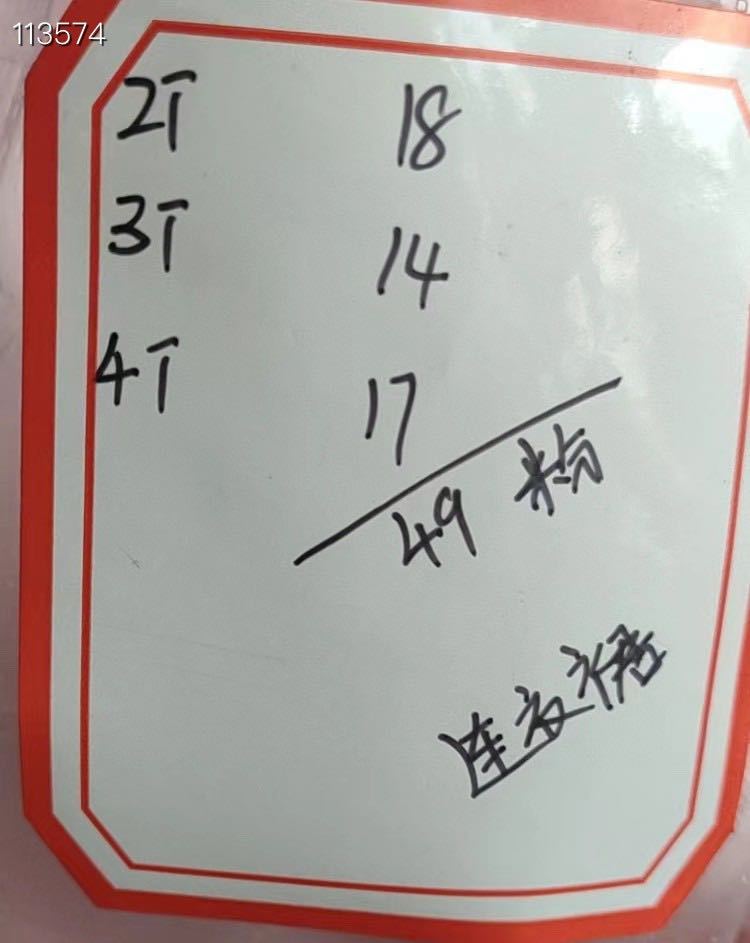 113574
2T 18
3T 14
4T 17
49 米与
连衣裙